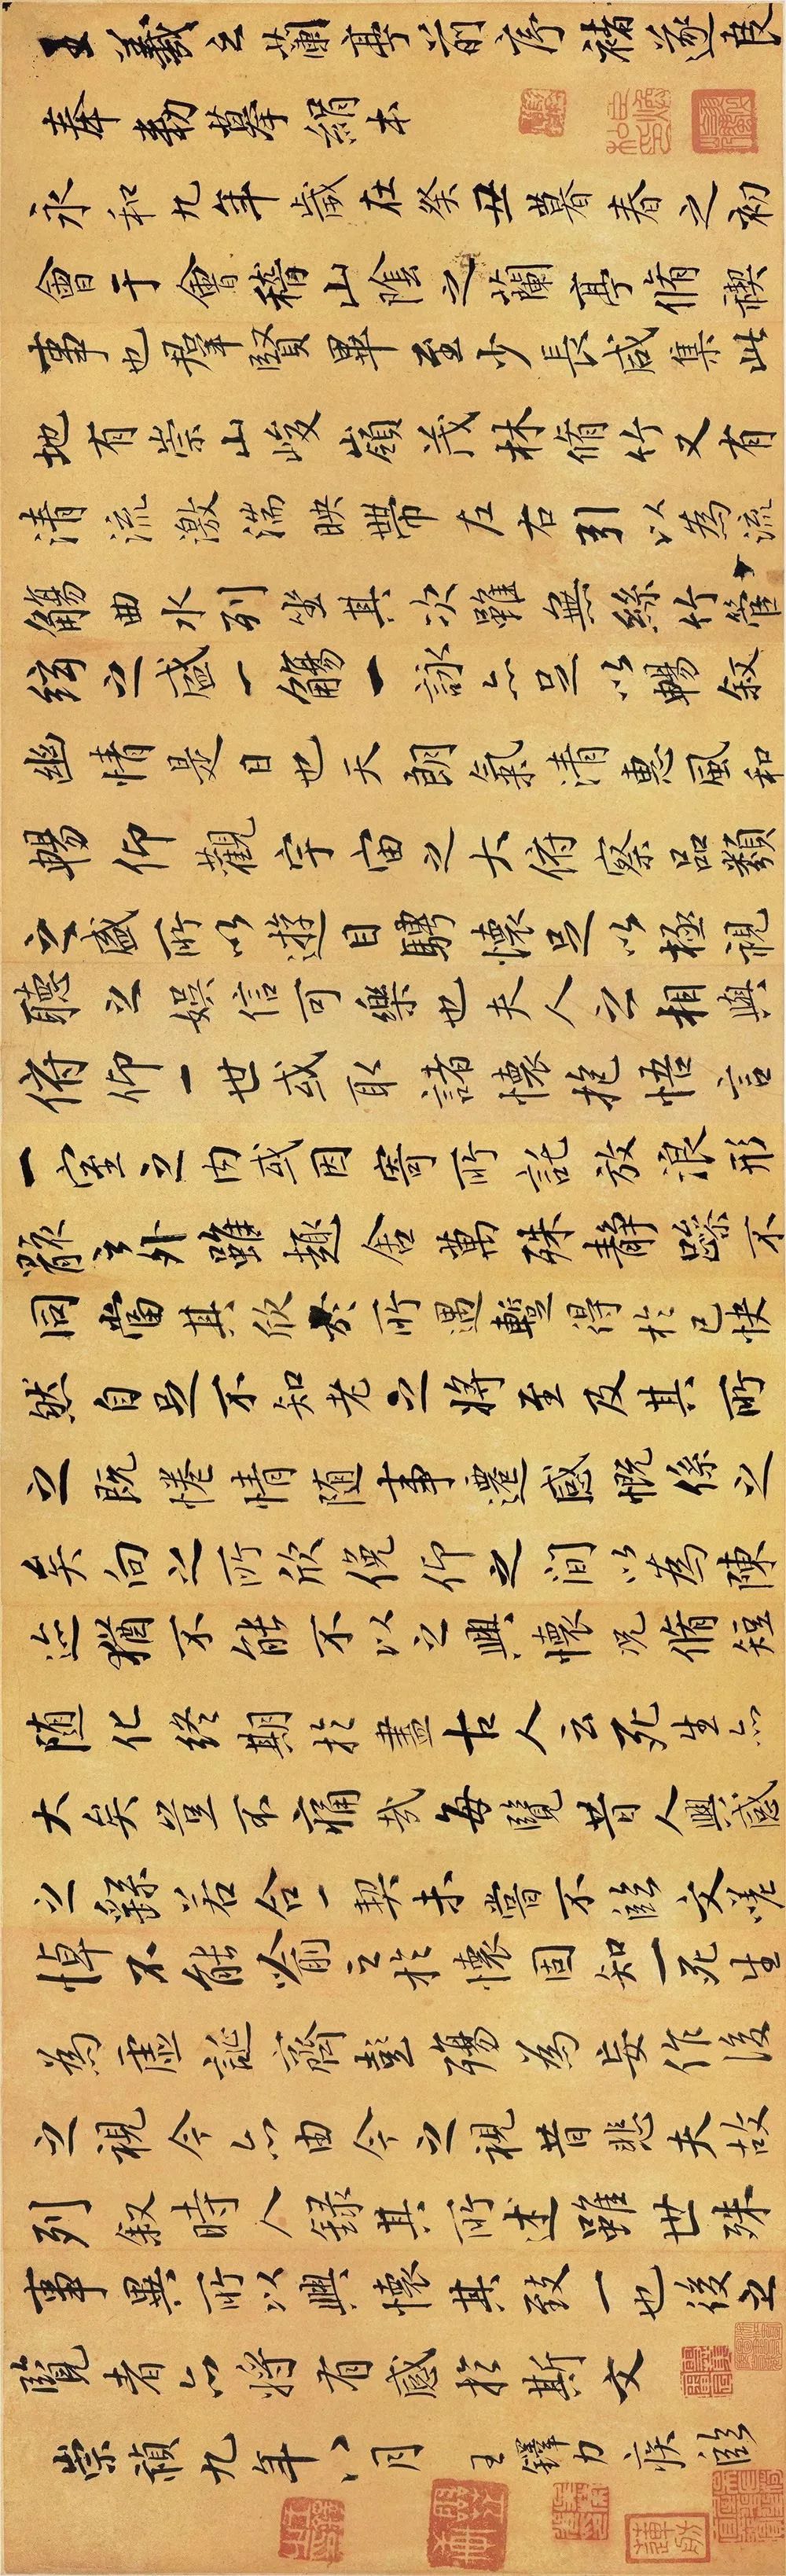 王羲之蘭亭前序褚遂良
奉勅摹絹本
永和九年歲在癸丑暮春之初
會于會稽山陰之蘭亭脩禊
事也群賢畢至少長咸集此
地有崇山峻嶺茂林脩竹又有
清流激湍映帶左右引以為流
觴曲水列坐其次雖無絲竹管
絃之盛一觴一詠亦足以暢叙
幽情是日也天朗氣清惠風和
暢仰觀宇宙之大俯察品類
之盛所以遊目騁懷足以極視
聽之娛信可樂也夫人之相與
俯仰一世或取諸懷抱悟言
一室之内或因寄所託放浪形
骸之外雖趣舍萬殊静躁不
同當其欣於所遇蹔得於己快
然自足不知老之將至及其所
之既惓情随事遷感慨係之
矣向之所欣俛仰之間以為陳
迹猶不能不以之興懷況脩短
随化終期於盡古人云死生亦
大矣豈不痛哉每覽昔人興感
之繇若合一契未嘗不臨文嗟
悼不能喻之於懷固知一死生
為虛誕齊彭殤為妄作後
之視今亦由今之視昔悲夫故
列叙時人録其所述雖世殊
事異所以興懷其致一也後之
覽者亦將有感於斯文
崇禎九年八月 王鐸力疾臨